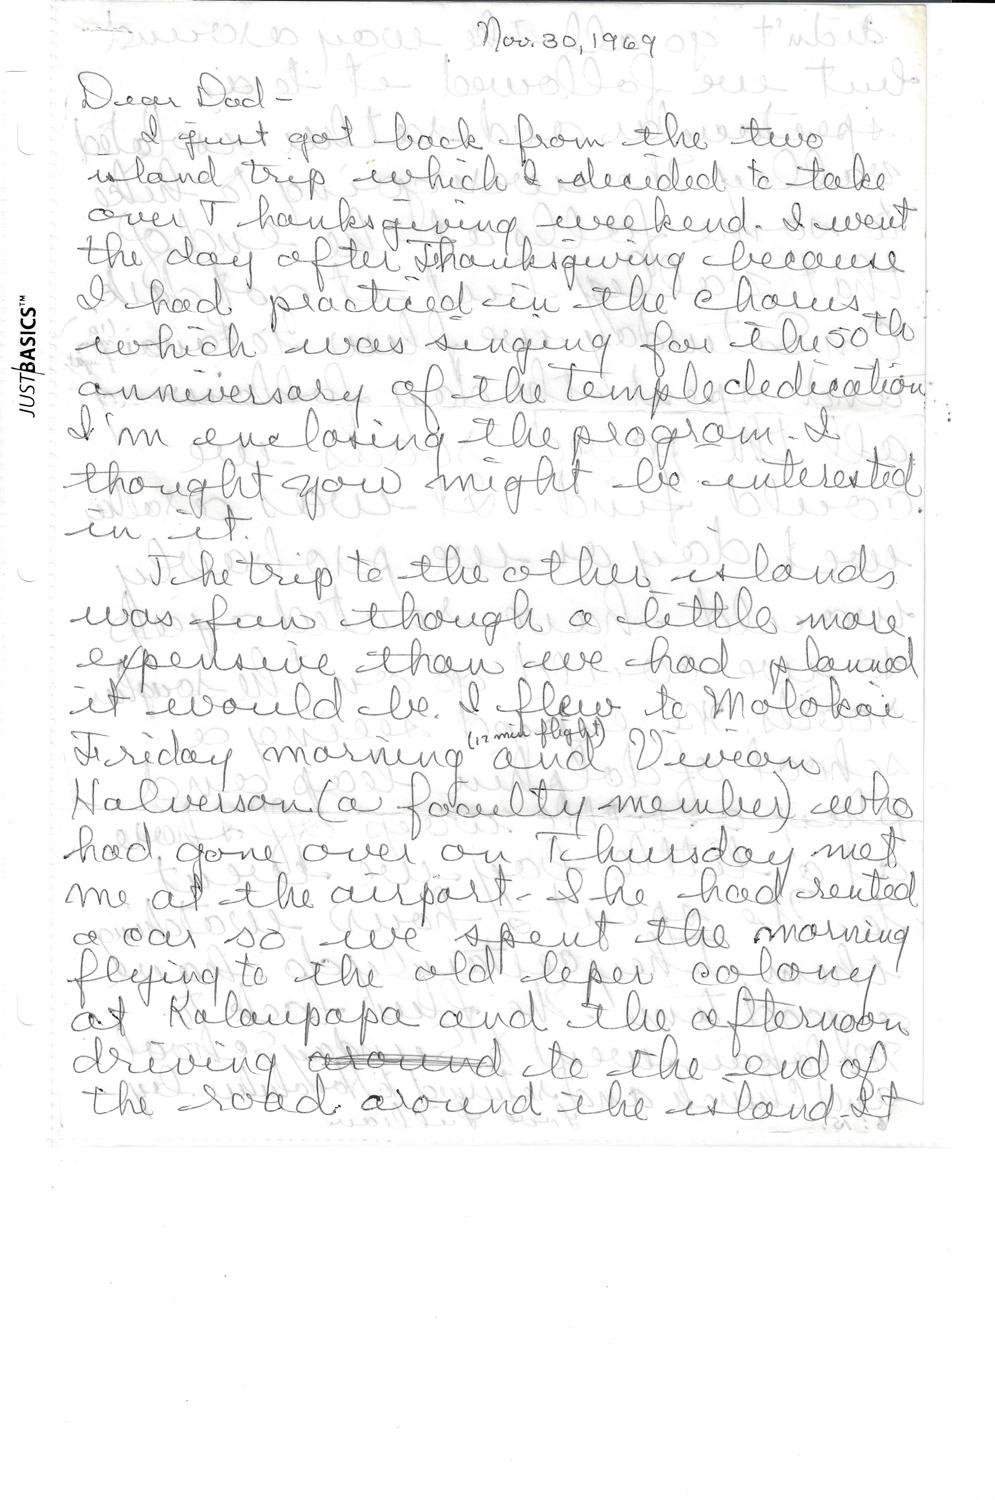 Nov. 30, 1969
Dear Dad -
I just got back from the two
island trip which I decided to take
over Thanksgiving weekend. I went
the day after Thanksgiving because
I had practiced in the chorus
which was singing for the 50th
anniversary of the temple dedication.
I'm enclosing the program. I
thought you might be interested
in it.
The trip to the other islands
was fun though a little more
expensive than we had planned
it would be. I flew to Molokai
(12 min flight)
Friday morning and Vivian
Halverson (a faculty member) who
had gone over on Thursday met
me at the airport. She had rented
a car so we spent the morning
flying to the old leper colony
at Kalaupapa and the afternoon
driving around to the end of
the road around the island. It
JUST/BASICS™